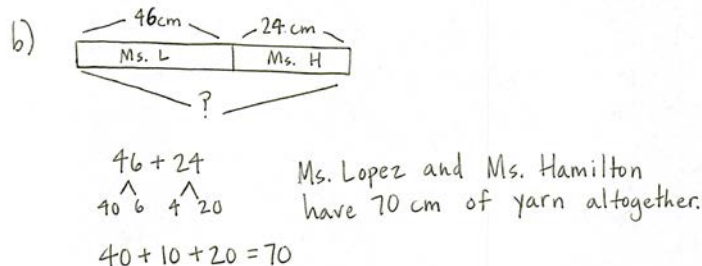 b)
46cm
24 cm
Ms. L
Ms. H
?
46 + 24
40 6 4 20
40 + 10 + 20 = 70
Ms. Lopez and Ms. Hamilton
have 70 cm of yarn altogether.